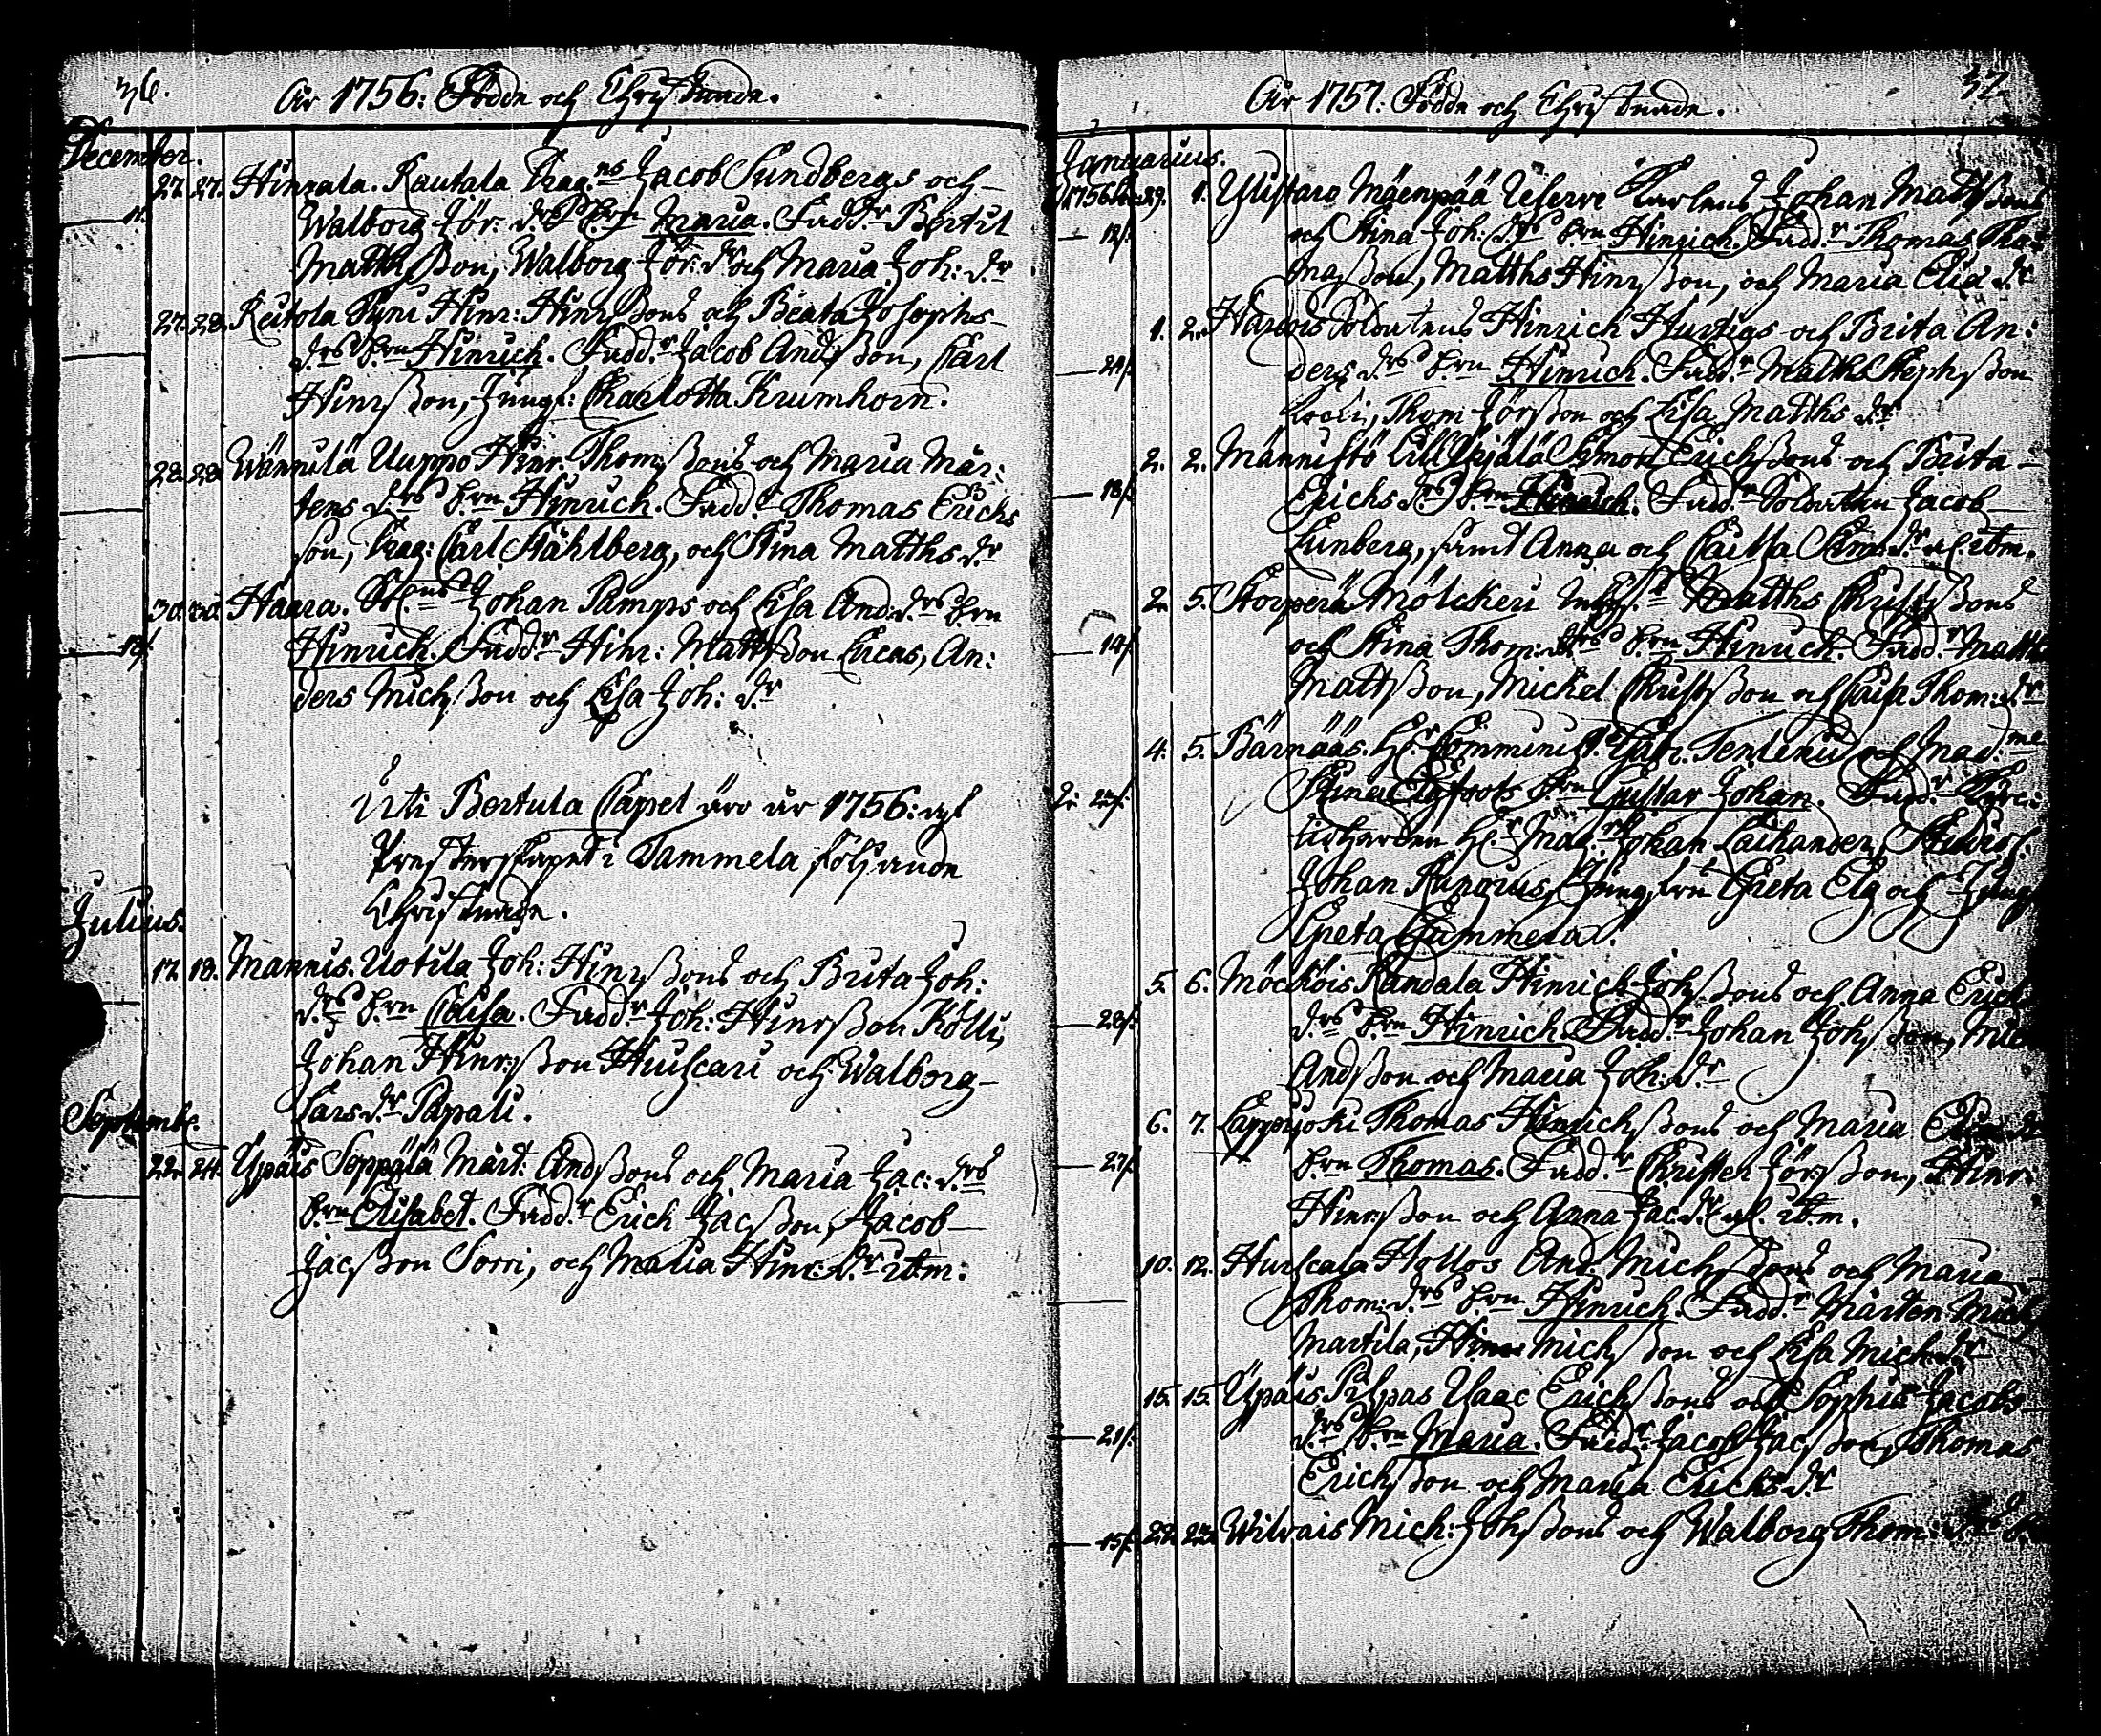 36.
År 1756: Födde och Christnade.
December.
27. 27. Hinrala. Rautala Drag.ns Jacob Sundbergs och
11. Walborg Jör: d.rs b.rn Maria. Fadd.r Bertil
Matthsson, Walborg Jör: d.r och Maria Joh: d.r
27. 28. Keitola Hinr: Hinrssons och Beata Josephs
d.rs b.rn Hinrich. Fadd.r Jacob Andsson, Carl
Hinrsson, Jungf: Charlotta Krumhorn.
28. 28. Wännilä Uuppo Hinr. Thomssons och Maria Mår:
tens d.rs b.rn Hinrich. Fadd.r Thomas Erichs
son, Drag: Carl Ståhlberg, och Stina Matths d.r
30. 30. Haara. Johan Pamps och Lisa And: d.rs b.rn
18. Hinrich. Fadd.r Hinr: Mattsson Lucas, An:
ders Michsson och Lisa Joh: d.r
Uti Bertula Capel äro år 1756: af
Presterskapet i Tammela följande
Christnade.
Julius.
17. 18. Mannis. Uotila Joh: Hinrssons och Brita Joh:
d.rs b.rn Caisa. Fadd.r Joh: Hinrsson Kölli,
Johan Hinrsson Huhcari och Walborg
Lars d.r Papali.
Septemb.
22. 24. Ypäis Seppälä Mårt: Andssons och Maria Jac: d.rs
b.rn Elisabet. Fadd.r Erich Jacsson, Jacob
Jacsson Sorri, och Maria Hinr: d.r ibm:
År 1757: Födde och Christnade.
37.
Januarius.
1756 29. 1. Mäenpää Reserve Karlens Johan Mattssons
12. och Stina Joh: d.rs b.rn Hinrich. Fadd.r Thomas Tho:
masson, Matths Hinrsson, och Maria Elia d.r
1. 2. Harois Soldatens Hinrich Hurtigs och Brita An:
24. ders d.rs b.rn Hinrich. Fadd.r Matths Stephsson
Thom Jörsson och Lisa Matths d.r
2. 2. Männistö Lill Simon Erichssons och Brita
18. Erichs d.rs b.rn Hinrich. Fadd.r Soldaten Jacob
Lunberg, samt Anna och Caisa Sim: d.r ibm.
2. 5. Storperä Mölckeri Matths Christssons
14. och Stina Thom: d.rs b.rn Hinrich. Fadd.r Matth
Mattsson, Michel Christsson och Thom: d.r
4. 5. Pärnääs. H.r Comminist. Gabr. Tenlenii och Mad.me
27. Stina Elgfoots b.rn Gustav Johan. Fadd.r
H.r Mag.r Johan Lachander, Studios.
Johan Pungrus, Greta Elg och Jungf
Greta Gammera.
5. 6. Möckois Randala Hinrich Johssons och Anna Erich
28. d.rs b.rn Hinrich. Fadd.r Johan Johsson, Mich
Andsson och Maria Joh: d.r
6. 7. Lappijoki Thomas Hinrichssons och Maria
27. b.rn Thomas. Fadd.r Christer Jörsson, Hinr:
Hinrsson och Anna Jac: d.r ibm.
10. 12. Huhcala Hollos And: Michssons och Maria
Thom: d.rs b.rn Hinrich. Fadd.r Mårten Mich
Martila, Hinr: Michsson och Lisa Mich: d.r
15. 15. Ypäis Pilpas Isaac Erichssons och Sophia Jacobs
21. d.rs b.rn Maria. Fadd.r Jacob Jacsson, Thomas
Erichsson och Maria Erichs d.r
15. 22. 23. Wilvais Mich: Johssons och Walborg Thom: d.rs